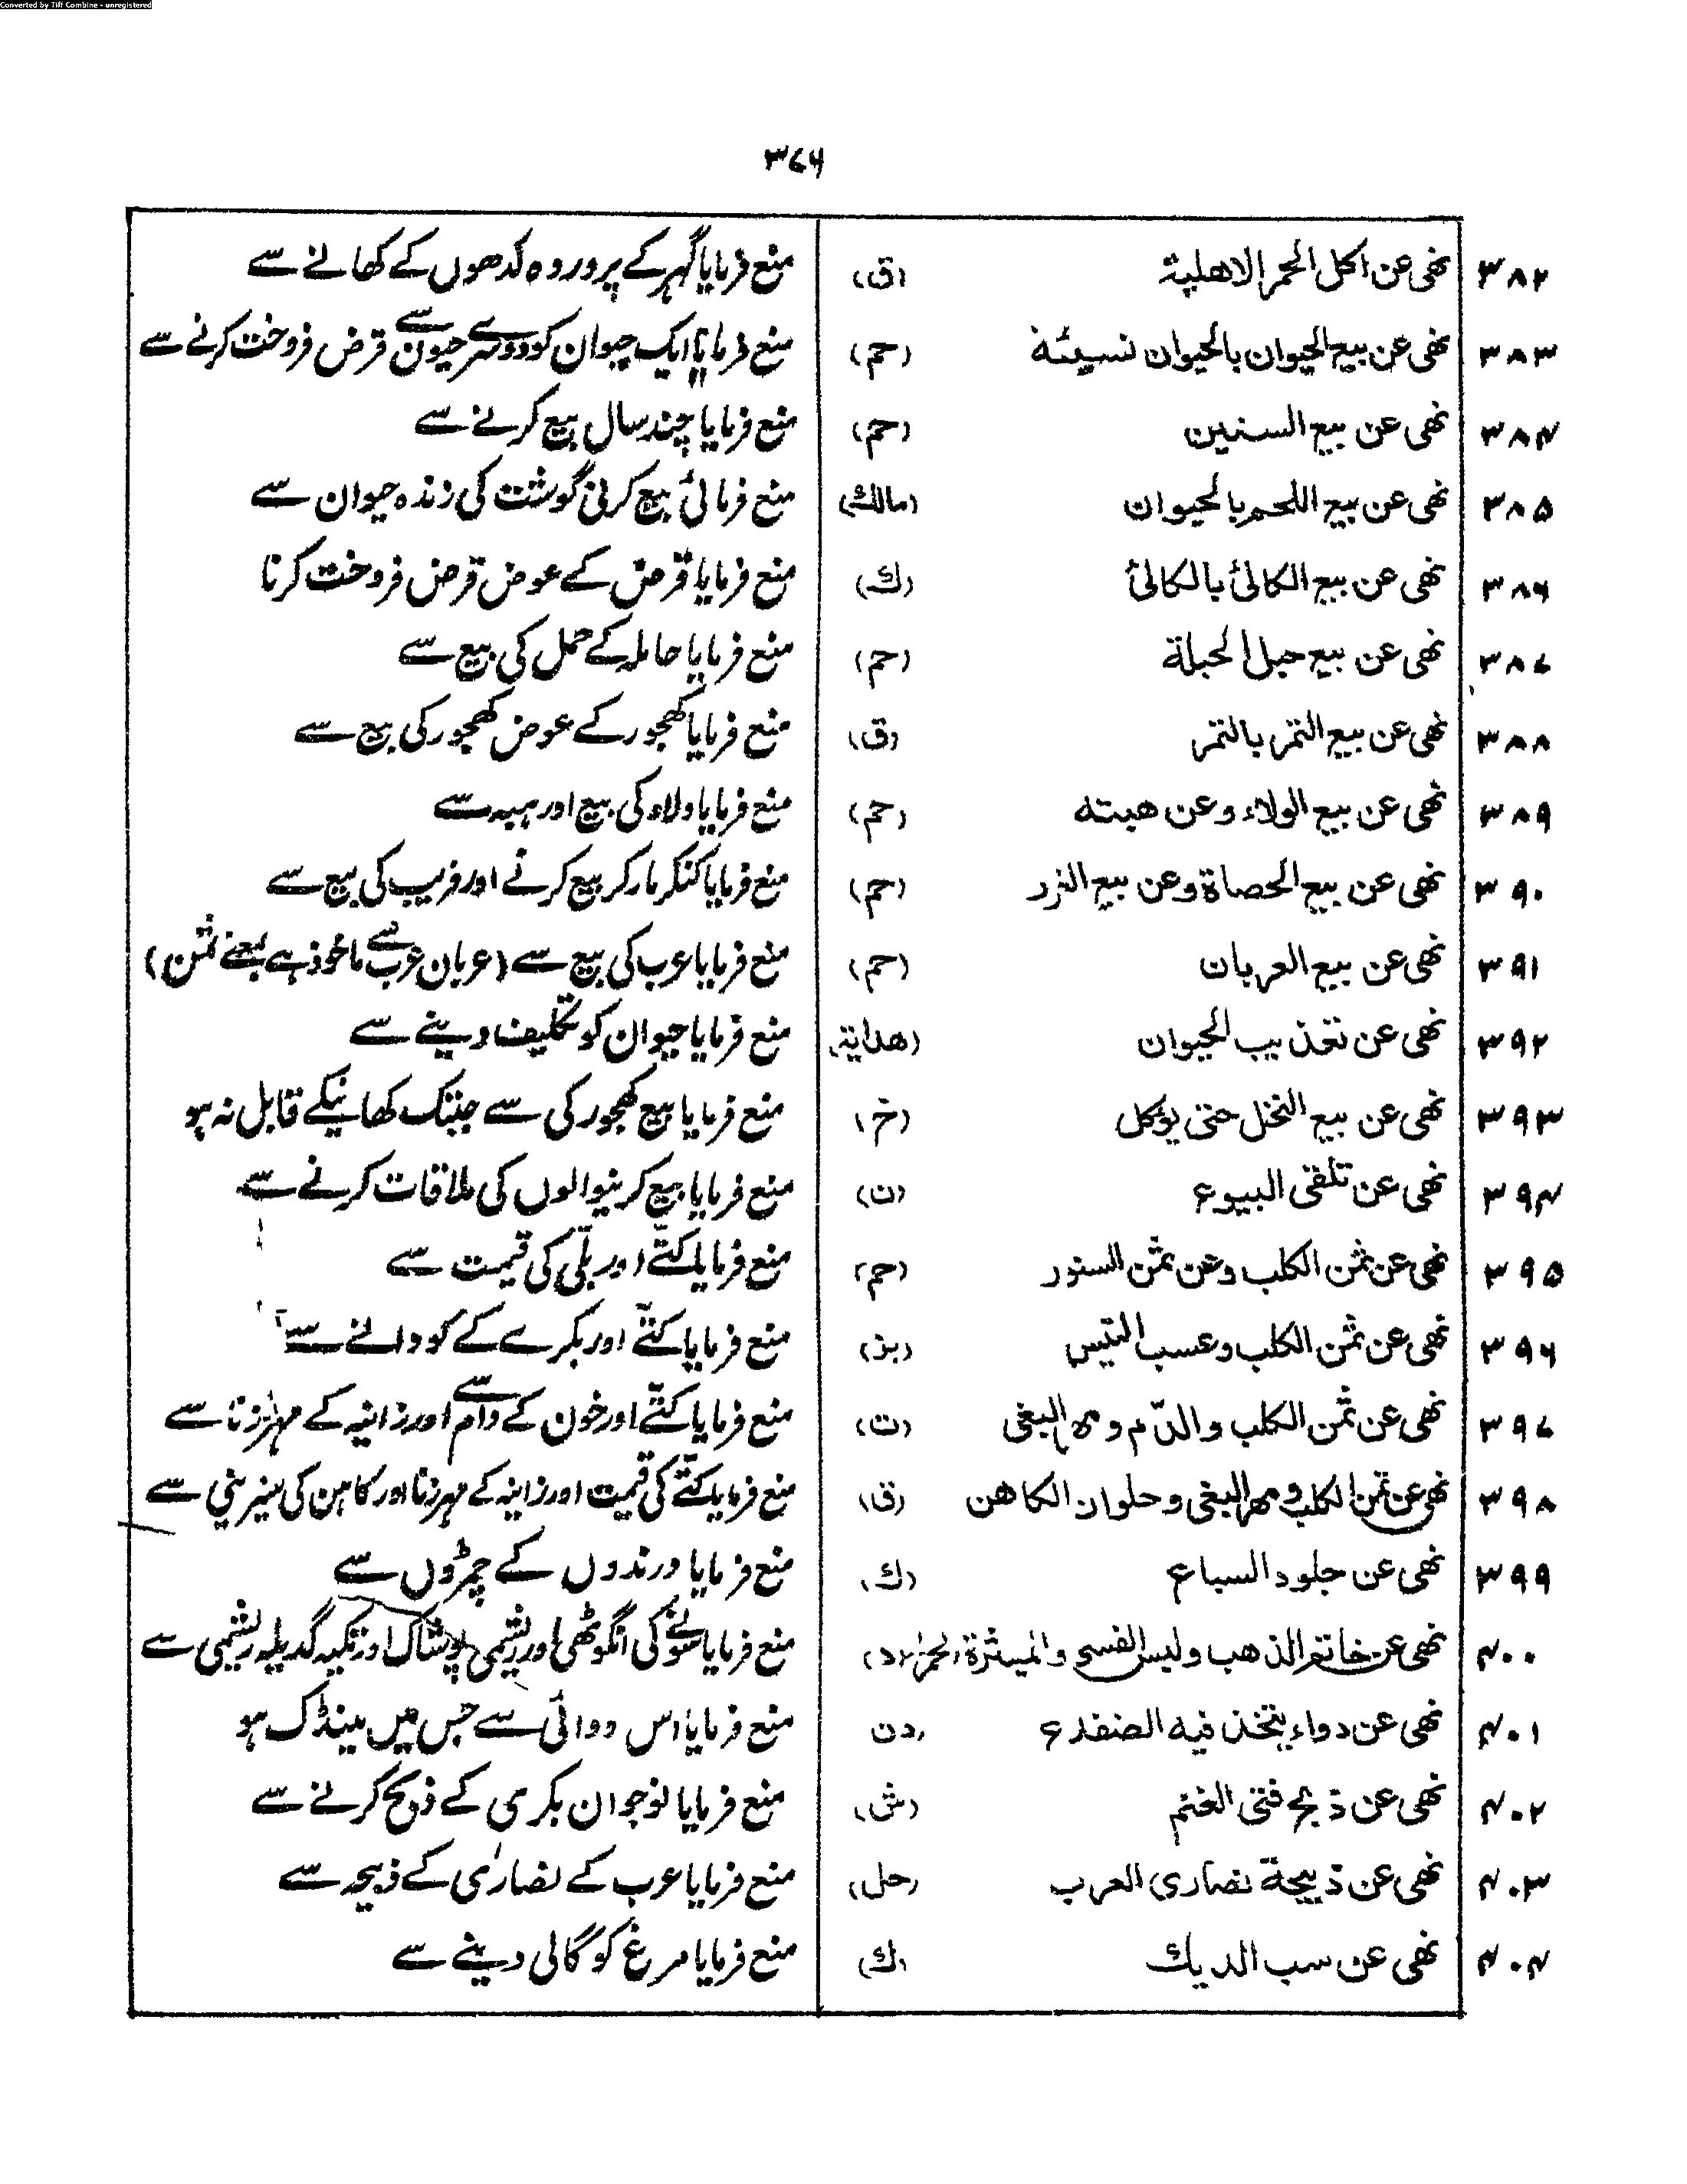 Converted by Tiff Combine - unregistered
۳۷۶
۳۸۲ نهی عن اکل الحمر الاهلیة (ق) منع فرمایا گہر کے پروردہ گدھوں کے کھانے سے
۳۸۳ نهی عن بیع الحیوان بالحیوان نسیئة (حم) منع فرمایا ایک حیوان کو دوسرے حیون سے قرض فروخت کرنے سے
۳۸۴ نهی عن بیع السنین (حم) منع فرمایا چند سال بیع کرنے سے
۳۸۵ نهی عن بیع اللحم بالحیوان (مالك) منع فرمائی بیع کرنی گوشت کی زندہ حیوان سے
۳۸۶ نهی عن بیع الکالئ بالکالئ (ك) منع فرمایا قرض کے عوض قرض فروخت کرنا
۳۸۷ نهی عن بیع حبل الحبلة (حم) منع فرمایا حاملہ کے حمل کی بیع سے
۳۸۸ نهی عن بیع التمر بالتمر (ق) منع فرمایا کھجور کے عوض کھجور کی بیع سے
۳۸۹ نهی عن بیع الولاء وعن هبته (حم) منع فرمایا ولاء کی بیع اور ہبہ سے
۳۹۰ نهی عن بیع الحصاة وعن بیع الغرر (حم) منع فرمایا کنکر مار کر بیع کرنے اور فریب کی بیع سے
۳۹۱ نهی عن بیع العربان (حم) منع فرمایا عرب کی بیع سے (عربان عرب سے ماخوذ ہے بمعنے ثمن)
۳۹۲ نهی عن تعذیب الحیوان (هدایة) منع فرمایا حیوان کو تکلیف دینے سے
۳۹۳ نهی عن بیع النخل حتی یؤکل (خ) منع فرمایا بیع کھجور کی سے جبتک کھانیکے قابل نہ ہو
۳۹۴ نهی عن تلقی البیوع (ن) منع فرمایا بیع کرنیوالوں کی ملاقات کرنے سے
۳۹۵ نهی عن ثمن الکلب وعن ثمن السنور (حم) منع فرمایا کتّے اور بلّی کی قیمت سے
۳۹۶ نهی عن ثمن الکلب وعسب التیس (بز) منع فرمایا کتّے اور بکرے کے کودانے سے
۳۹۷ نهی عن ثمن الکلب والدّم ومهر البغی (ت) منع فرمایا کتّے اور خون کے دام سے اور زانیہ کے مہر زنا سے
۳۹۸ نهی عن ثمن الکلب ومهر البغی وحلوان الکاهن (ق) منع فرمایا کتّے کی قیمت اور زانیہ کے مہر زنا اور کاہن کی شیرینی سے
۳۹۹ نهی عن جلود السباع (ك) منع فرمایا درندوں کے چمڑوں سے
۴۰۰ نهی عن خاتم الذهب ولبس القسی والمیثرة الحمراء (د) منع فرمایا سونے کی انگوٹھی اور ریشمی پوشاک اور تکیہ گدیلہ ریشمی سے
۴۰۱ نهی عن دواء یتخذ فیه الضفدع (دن) منع فرمایا اس دوائی سے جس میں مینڈک ہو
۴۰۲ نهی عن ذبح فتی الغنم (ش) منع فرمایا نوجوان بکری کے ذبح کرنے سے
۴۰۳ نهی عن ذبیحة نصاری العرب (حل) منع فرمایا عرب کے نصاریٰ کے ذبیحہ سے
۴۰۴ نهی عن سب الدیك (ك) منع فرمایا مرغ کو گالی دینے سے